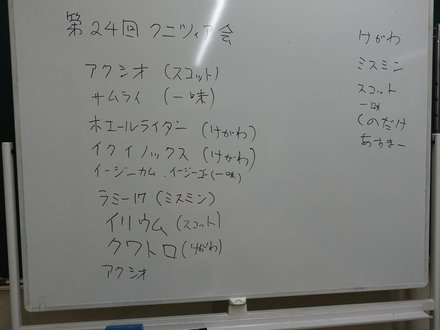 第24回 クニツィア会
アクシオ (スコット)
サムライ (一味)
ホエールライダー (けがわ)
イクイノックス (けがわ)
イージーカム、イージーゴー (一味)
ラミー17 (ミスミン)
イリウム (スコット)
クワトロ (けがわ)
アクシオ
けがわ
ミスミン
スコット
一味
しのだけ
あすきー